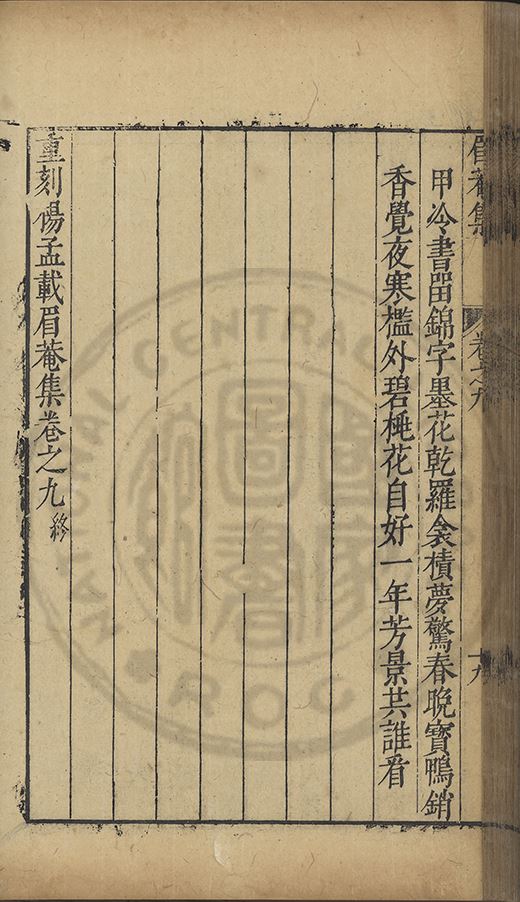 眉菴集
卷之九
十九
甲冷書畱錦字墨花乾羅衾積夢驚春晚寳鴨銷
香覺夜寒檻外碧桃花自好一年芳景共誰看
重刻楊孟載眉菴集卷之九終